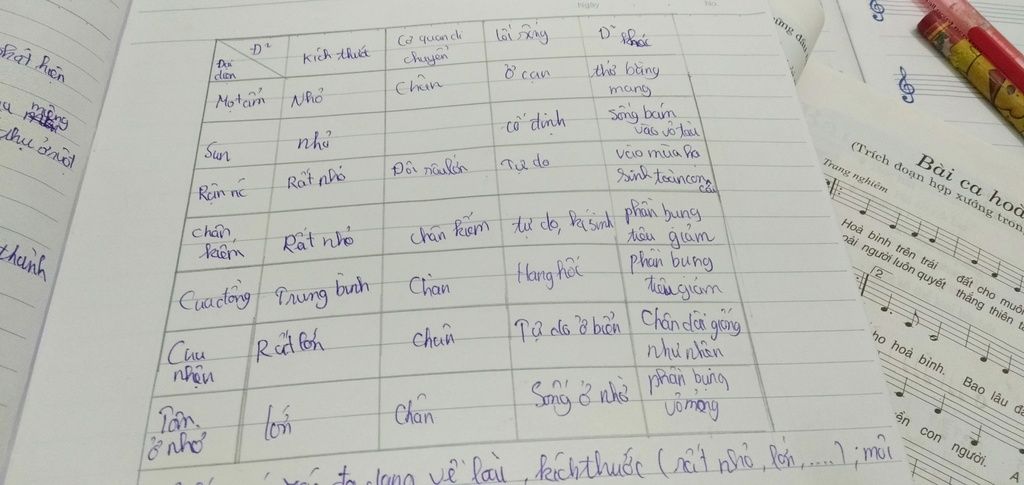 Ngày No.
Đ² Kích thước Cơ quan di chuyển Lối sống Đ² khác
Đại diện
Mọt ẩm Nhỏ Chân Ở cạn thở bằng mang
Sun nhỏ cố định Sống bám vào vỏ tàu
Rận nước Rất nhỏ Đôi râu lớn Tự do vào mùa hạ sinh toàn con cái
chân kiếm Rất nhỏ chân kiếm tự do, kí sinh phần bụng tiêu giảm
Cua đồng Trung bình Chân Hang hốc phần bụng tiêu giảm
Cua nhện Rất lớn chân Tự do ở biển Chân dài giống như nhện
Tôm ở nhờ lớn Chân Sống ở nhờ phần bụng vỏ mỏng
đa dạng về loài, kích thước (rất nhỏ, lớn,....); môi
phát hiện
thành
Bài ca hoà
(Trích đoạn hợp xướng tron
Trang nghiêm
Hoà bình trên trái đất cho muô
người luôn quyết thắng thiên t
2
ho hoà bình. Bao lâu đ
con người. A